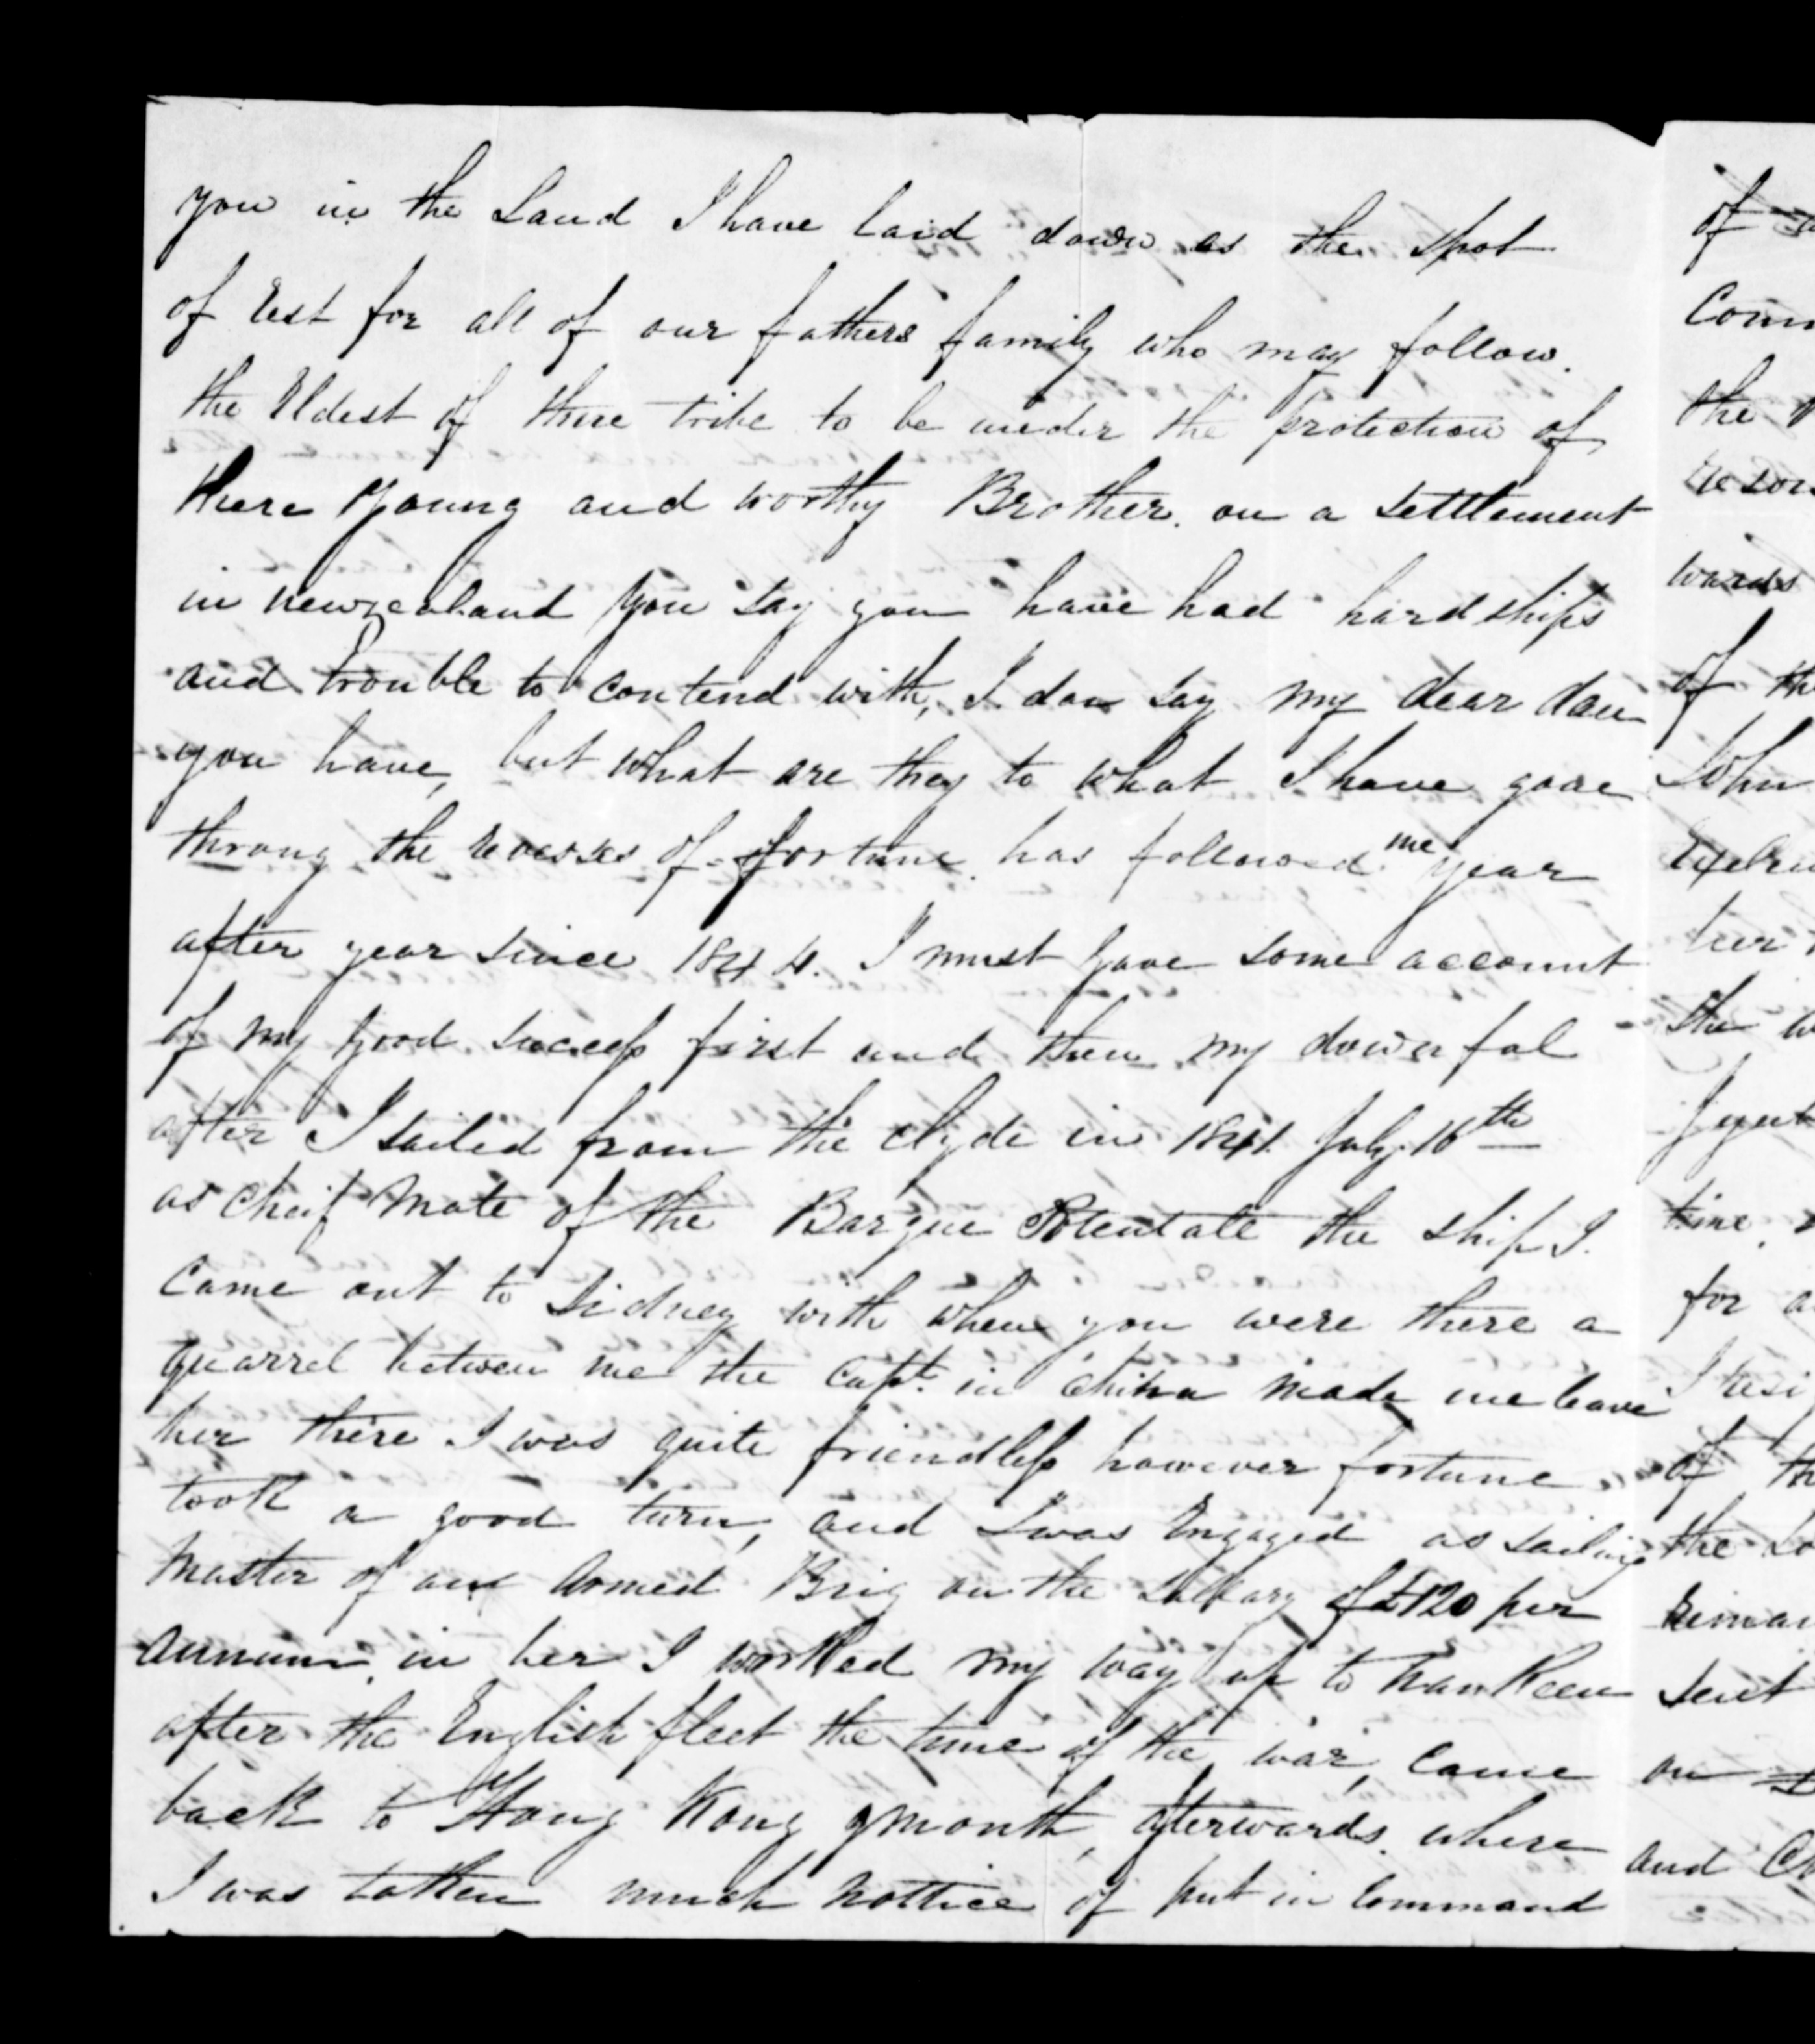 you in the Land I have laid down as the spot
of rest for all of our fathers family who may follow.
the Eldest of there tribe to be under the protection of
there Young and worthy Brother. on a settlement
in newzealand you say you have had hardships
and trouble to contend with, I dare say my dear dan
you have, but what are they to what I have gone
throug the of fortune has followed me year
after year since 1844. I must gave some account
of my good success first and then my downfal
after I sailed from the Clyde in 1841 July 16th
as cheif mate of the Barque Potentate the ship I.
came out to Sidney with when you were there a
quarrel between me the Capt. in China made me leave
her there I was quite friendless however fortune
took a good turn, and I was Engaged as sailing
master of an Armed Brig on the sallary of £120 per
annum. in her I worked my way up to Nankeen
after the English fleet the time of the war, came
back to Hong Kong 9 month, afterwards. where
I was taken much nottice of put in Command
of
Com
the
wards
of the
John
her
the
time.
for a
I resi
of th
the
remai
sent
on
and Ch